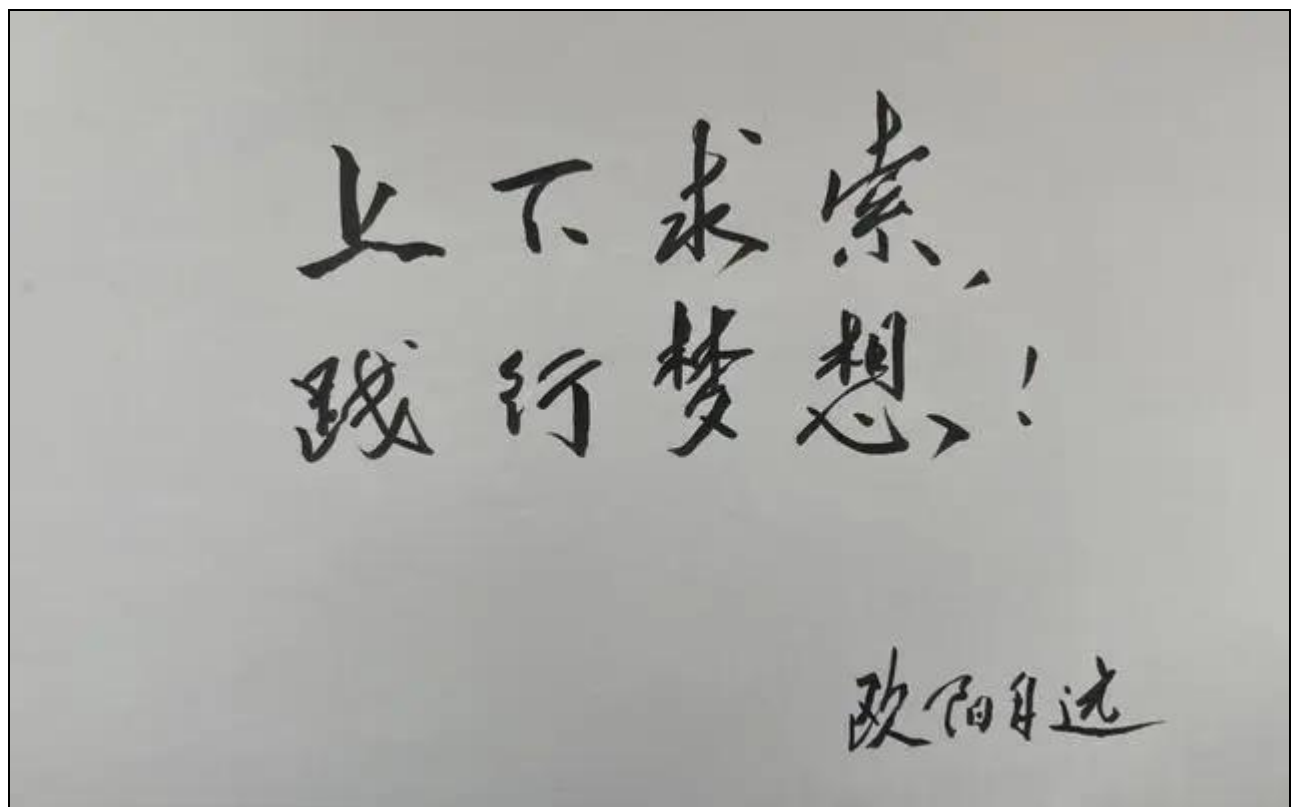 上下求索，
践行梦想！
欧阳自远